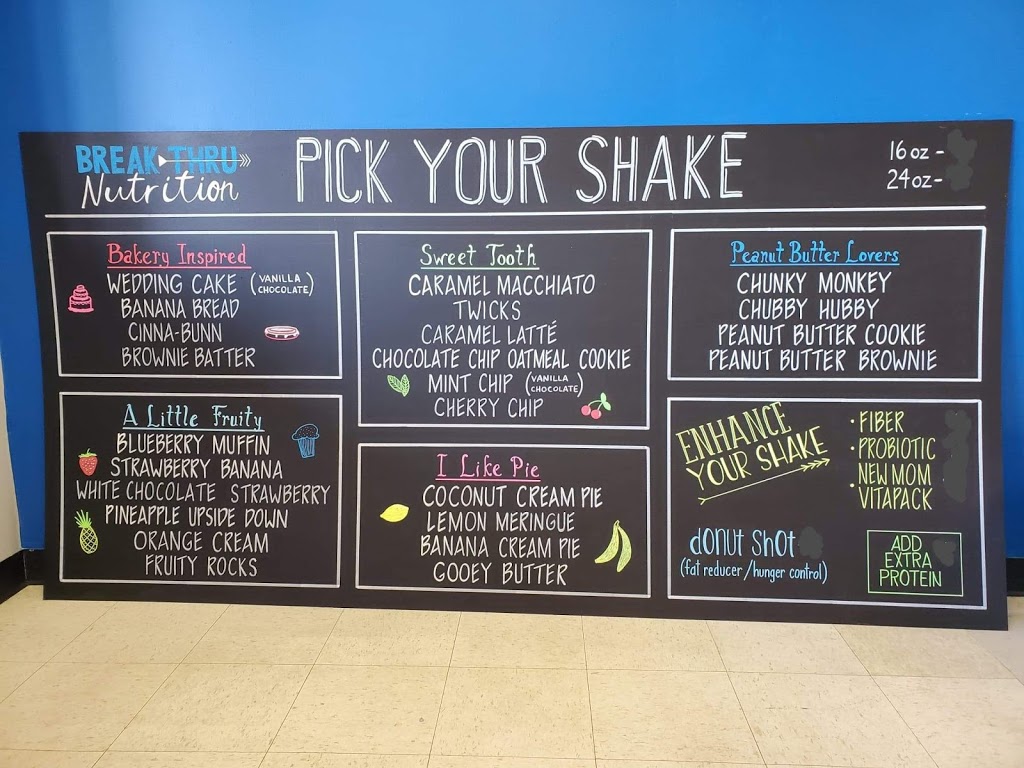 BREAK THRU
Nutrition
PICK YOUR SHAKE
16 oz -
24 oz -
Bakery Inspired
WEDDING CAKE (VANILLA
CHOCOLATE)
BANANA BREAD
CINNA-BUNN
BROWNIE BATTER
A Little Fruity
BLUEBERRY MUFFIN
STRAWBERRY BANANA
WHITE CHOCOLATE STRAWBERRY
PINEAPPLE UPSIDE DOWN
ORANGE CREAM
FRUITY ROCKS
Sweet Tooth
CARAMEL MACCHIATO
TWICKS
CARAMEL LATTÉ
CHOCOLATE CHIP OATMEAL COOKIE
MINT CHIP (VANILLA
CHOCOLATE)
CHERRY CHIP
I Like Pie
COCONUT CREAM PIE
LEMON MERINGUE
BANANA CREAM PIE
GOOEY BUTTER
Peanut Butter Lovers
CHUNKY MONKEY
CHUBBY HUBBY
PEANUT BUTTER COOKIE
PEANUT BUTTER BROWNIE
ENHANCE
YOUR SHAKE
• FIBER
• PROBIOTIC
• NEW MOM
VITAPACK
donut shot
(fat reducer/hunger control)
ADD
EXTRA
PROTEIN